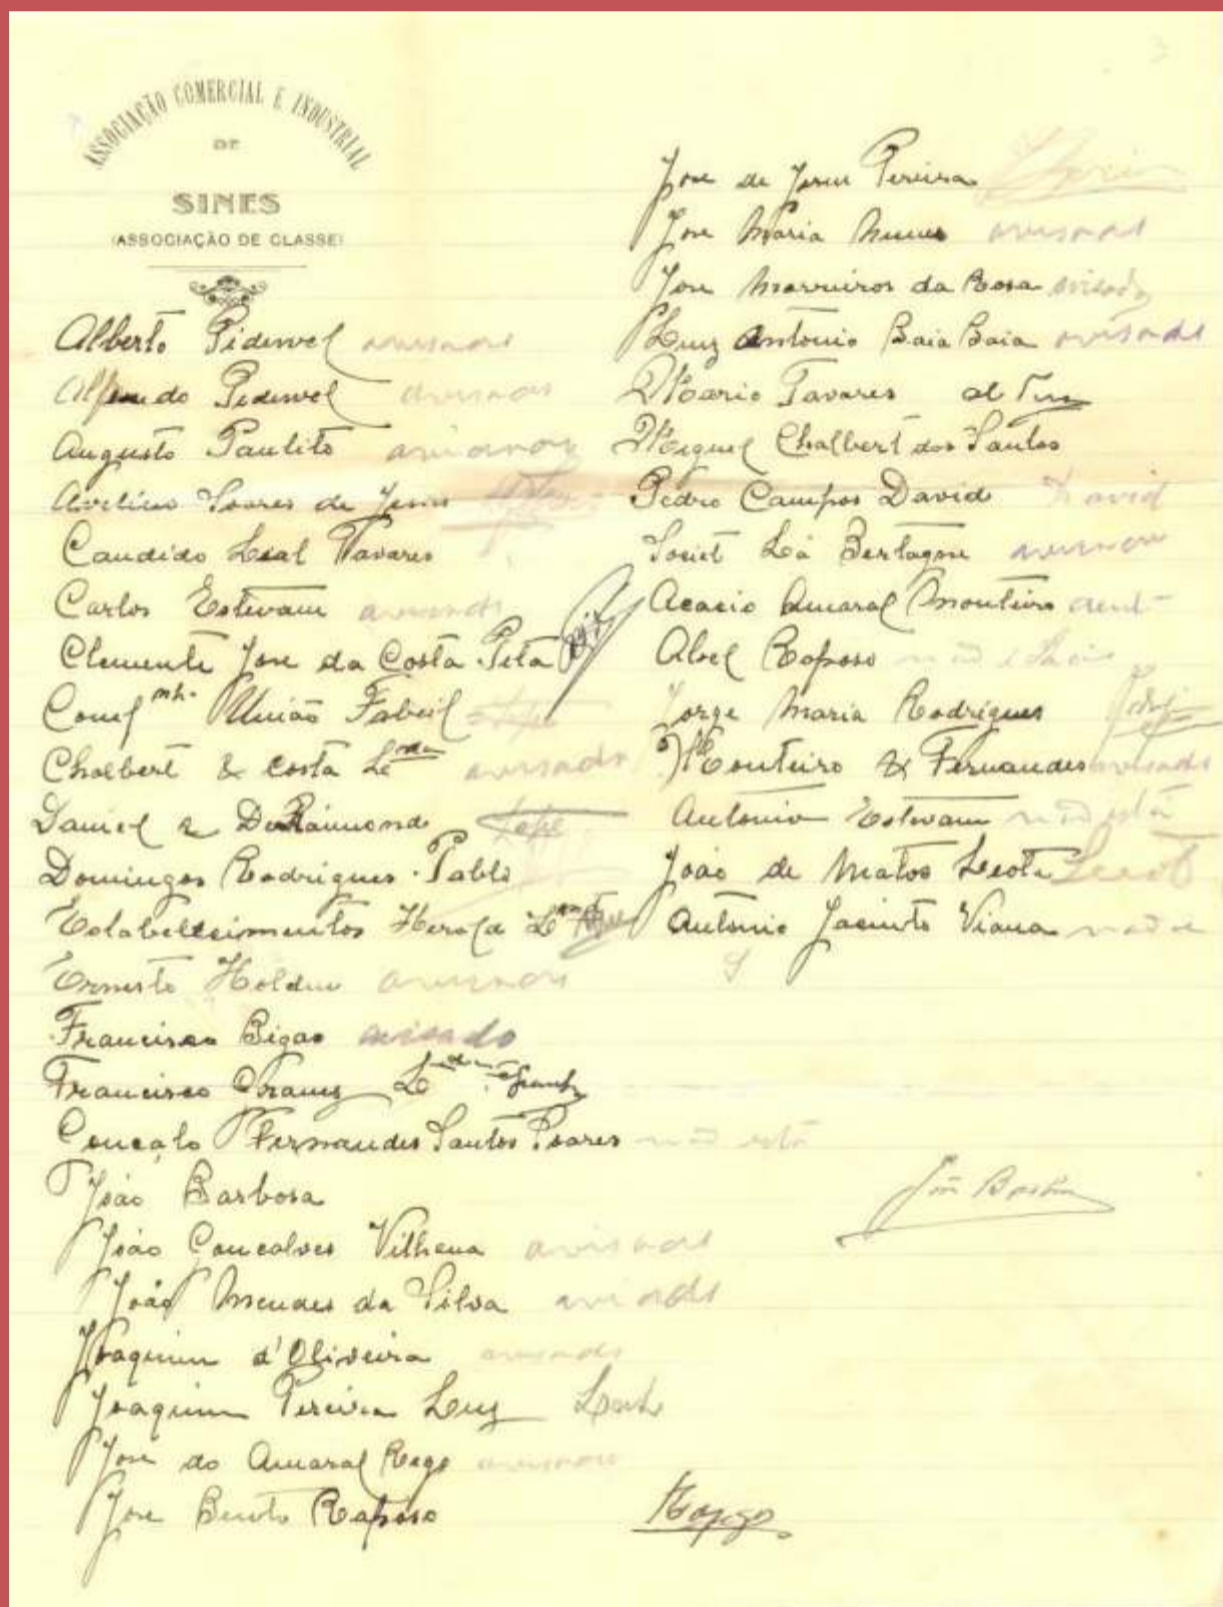 ASSOCIAÇÃO COMERCIAL E INDUSTRIAL
DE
SINES
(ASSOCIAÇÃO DE CLASSE)
Alberto Pidwel avisado
Alfredo Pidwel avisado
Augusto Paulito avisado
Avelino Soares de Jesus
Candido Leal Tavares
Carlos Estevam avisado
Clemente Jose da Costa Peta
União Fabril
Chalbert & Costa Lda avisado
Daniel & De Raimond
Domingos Rodrigues Pablo
Estabelecimentos Herold
Ernesto Holdur avisado
Francisco Bigao avisado
Francisco
Concalo Fernandes Santos Soares não está
João Barbosa
João Goncalves Vilhena avisado
João Mendes da Silva avisado
Joaquim d'Oliveira avisado
Joaquim Pereira Luz
Jose do Amaral Rego avisado
Jose Bento Raposo
Jose de Jesus Pereira
Jose Maria Nunes avisado
Jose Marreiros da Rosa avisado
Luiz Antonio Baia Baia avisado
Mario Tavares
Miguel Chalbert dos Santos
Pedro Campos David David
Societ La Bertagne avisado
Acacio Amaral Monteiro
Abel Raposo não é
Jorge Maria Rodrigues
Monteiro & Fernandes avisado
Antonio Estevam não está
João de Matos Leote
Antonio Jacinto Viana não é